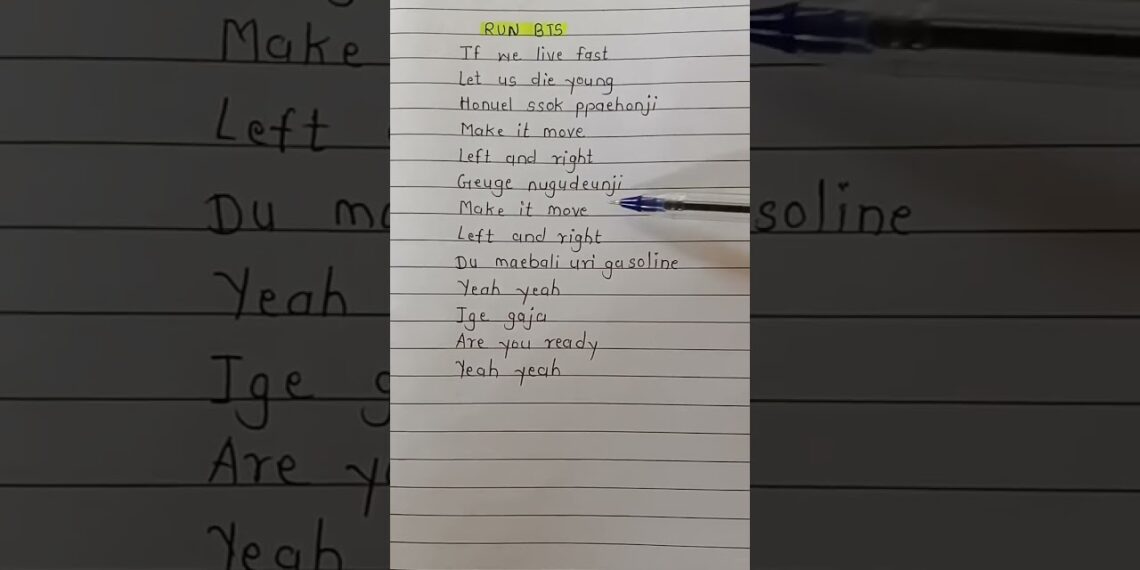 RUN BTS
If we live fast
Let us die young
Honuel ssok ppaehonji
Make it move
Left and right
Geuge nugudeunji
Make it move
Left and right
Du maebali uri gasoline
Yeah yeah
Ige gaja
Are you ready
Yeah yeah